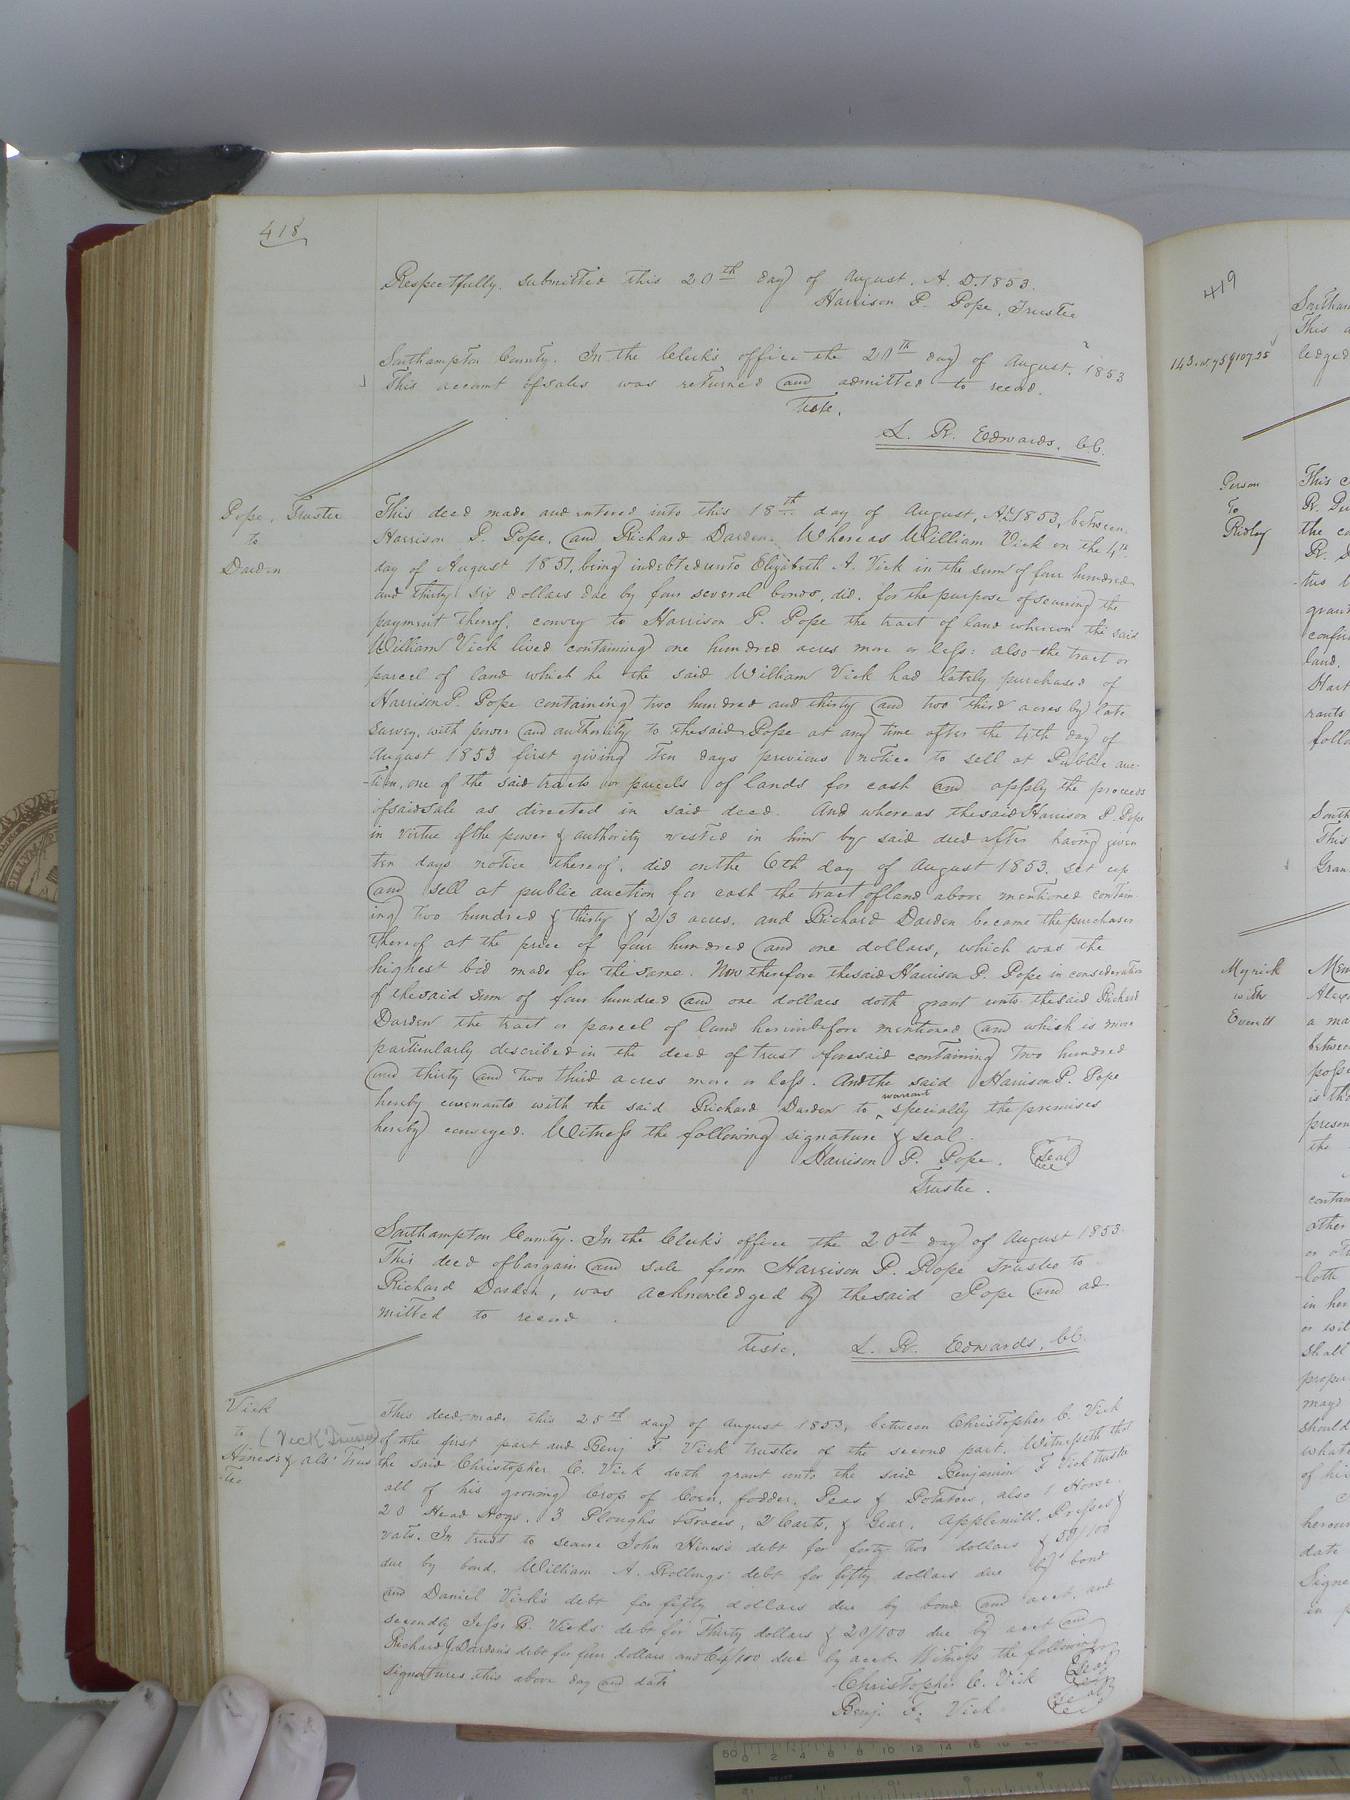 418
Respectfully submitted this 20th day of August. A. D. 1853.
Harrison P. Pope, Trustee
Southampton County. In the Clerk's office the 20th day of August, 1853
This account of sales was returned and admitted to record.
Teste,
L. R. Edwards, CC.
Pope, Trustee
to
Darden
This deed made and entered into this 18th day of August, AD 1853, between
Harrison P. Pope, and Richard Darden. Whereas William Vick on the 4th
day of August 1851, being indebted unto Elizabeth A. Vick in the sum of four hundred
and thirty six dollars due by four several bonds, did, for the purpose of securing the
payment thereof, convey to Harrison P. Pope the tract of land whereon the said
William Vick lived containing one hundred acres more or less: also the tract or
parcel of land which he the said William Vick had lately purchased of
Harrison P. Pope containing two hundred and thirty and two third acres by late
survey, with power and authority to the said Pope at any time after the 4th day of
August 1853 first giving ten days previous notice to sell at Public auc-
-tion, one of the said tracts or parcels of lands for cash and apply the proceeds
of said sale as directed in said deed. And whereas the said Harrison P. Pope
in virtue of the power & authority vested in him by said deed after having given
ten days notice thereof, did on the 6th day of August 1853, set up
and sell at public auction for cash the tract of land above mentioned contain-
ing two hundred & thirty & 2/3 acres, and Richard Darden became the purchaser
thereof at the price of four hundred and one dollars, which was the
highest bid made for the same. Now therefore the said Harrison P. Pope in consideration
of the said sum of four hundred and one dollars doth grant unto the said Richard
Darden the tract or parcel of land hereinbefore mentioned and which is more
particularly described in the deed of trust aforesaid containing two hundred
and thirty and two third acres more or less. And the said Harrison P. Pope
hereby covenants with the said Richard Darden to warrant specially the premises
hereby conveyed. Witness the following signature & seal.
Harrison P. Pope. Seal
Trustee.
Southampton County. In the Clerk's office the 20th day of August 1853
This deed of bargain and sale from Harrison P. Pope Trustee to
Richard Darden, was acknowledged by the said Pope and ad-
mitted to record.
Teste, L. R. Edwards, CC.
Vick
to (Vick Trustee)
Hines & als Trus
tee
This deed, made this 25th day of August 1853, between Christopher C. Vick
of the first part and Benj F. Vick trustee of the second part. Witnesseth that
the said Christopher C. Vick doth grant unto the said Benjamin F Vick trustee
all of his growing Crop of Corn, fodder, Peas & Potatoes, also 1 Horse
20 Head Hogs, 3 Ploughs & Traces, 2 Carts, & Gear, Applemill, Presses &
vats. In trust to secure John Hines's debt for forty two dollars & 50/100
due by bond, William A. Rollings' debt for fifty dollars due by bond
and Daniel Vick's debt for fifty dollars due by bond and acct. and
secondly Jesse B. Vicks' debt for Thirty dollars & 20/100 due by acct and
Richard J. Darden's debt for four dollars and 64/100 due by acct. Witness the following
signatures this above day and date
Christopher C. Vick Seal
Benj. F. Vick Seal
419
Southam
This a
ledged
Person
To
Ridley
This
the
grant
confir
land.
Hart
rants
follo
South
This
Gran
Myrick
with
Everitt
a ma
between
is tha
presen
the
contain
other
in her
or wil
shall
proper
may
should
what
of hi
hereun
date
Signe
in p